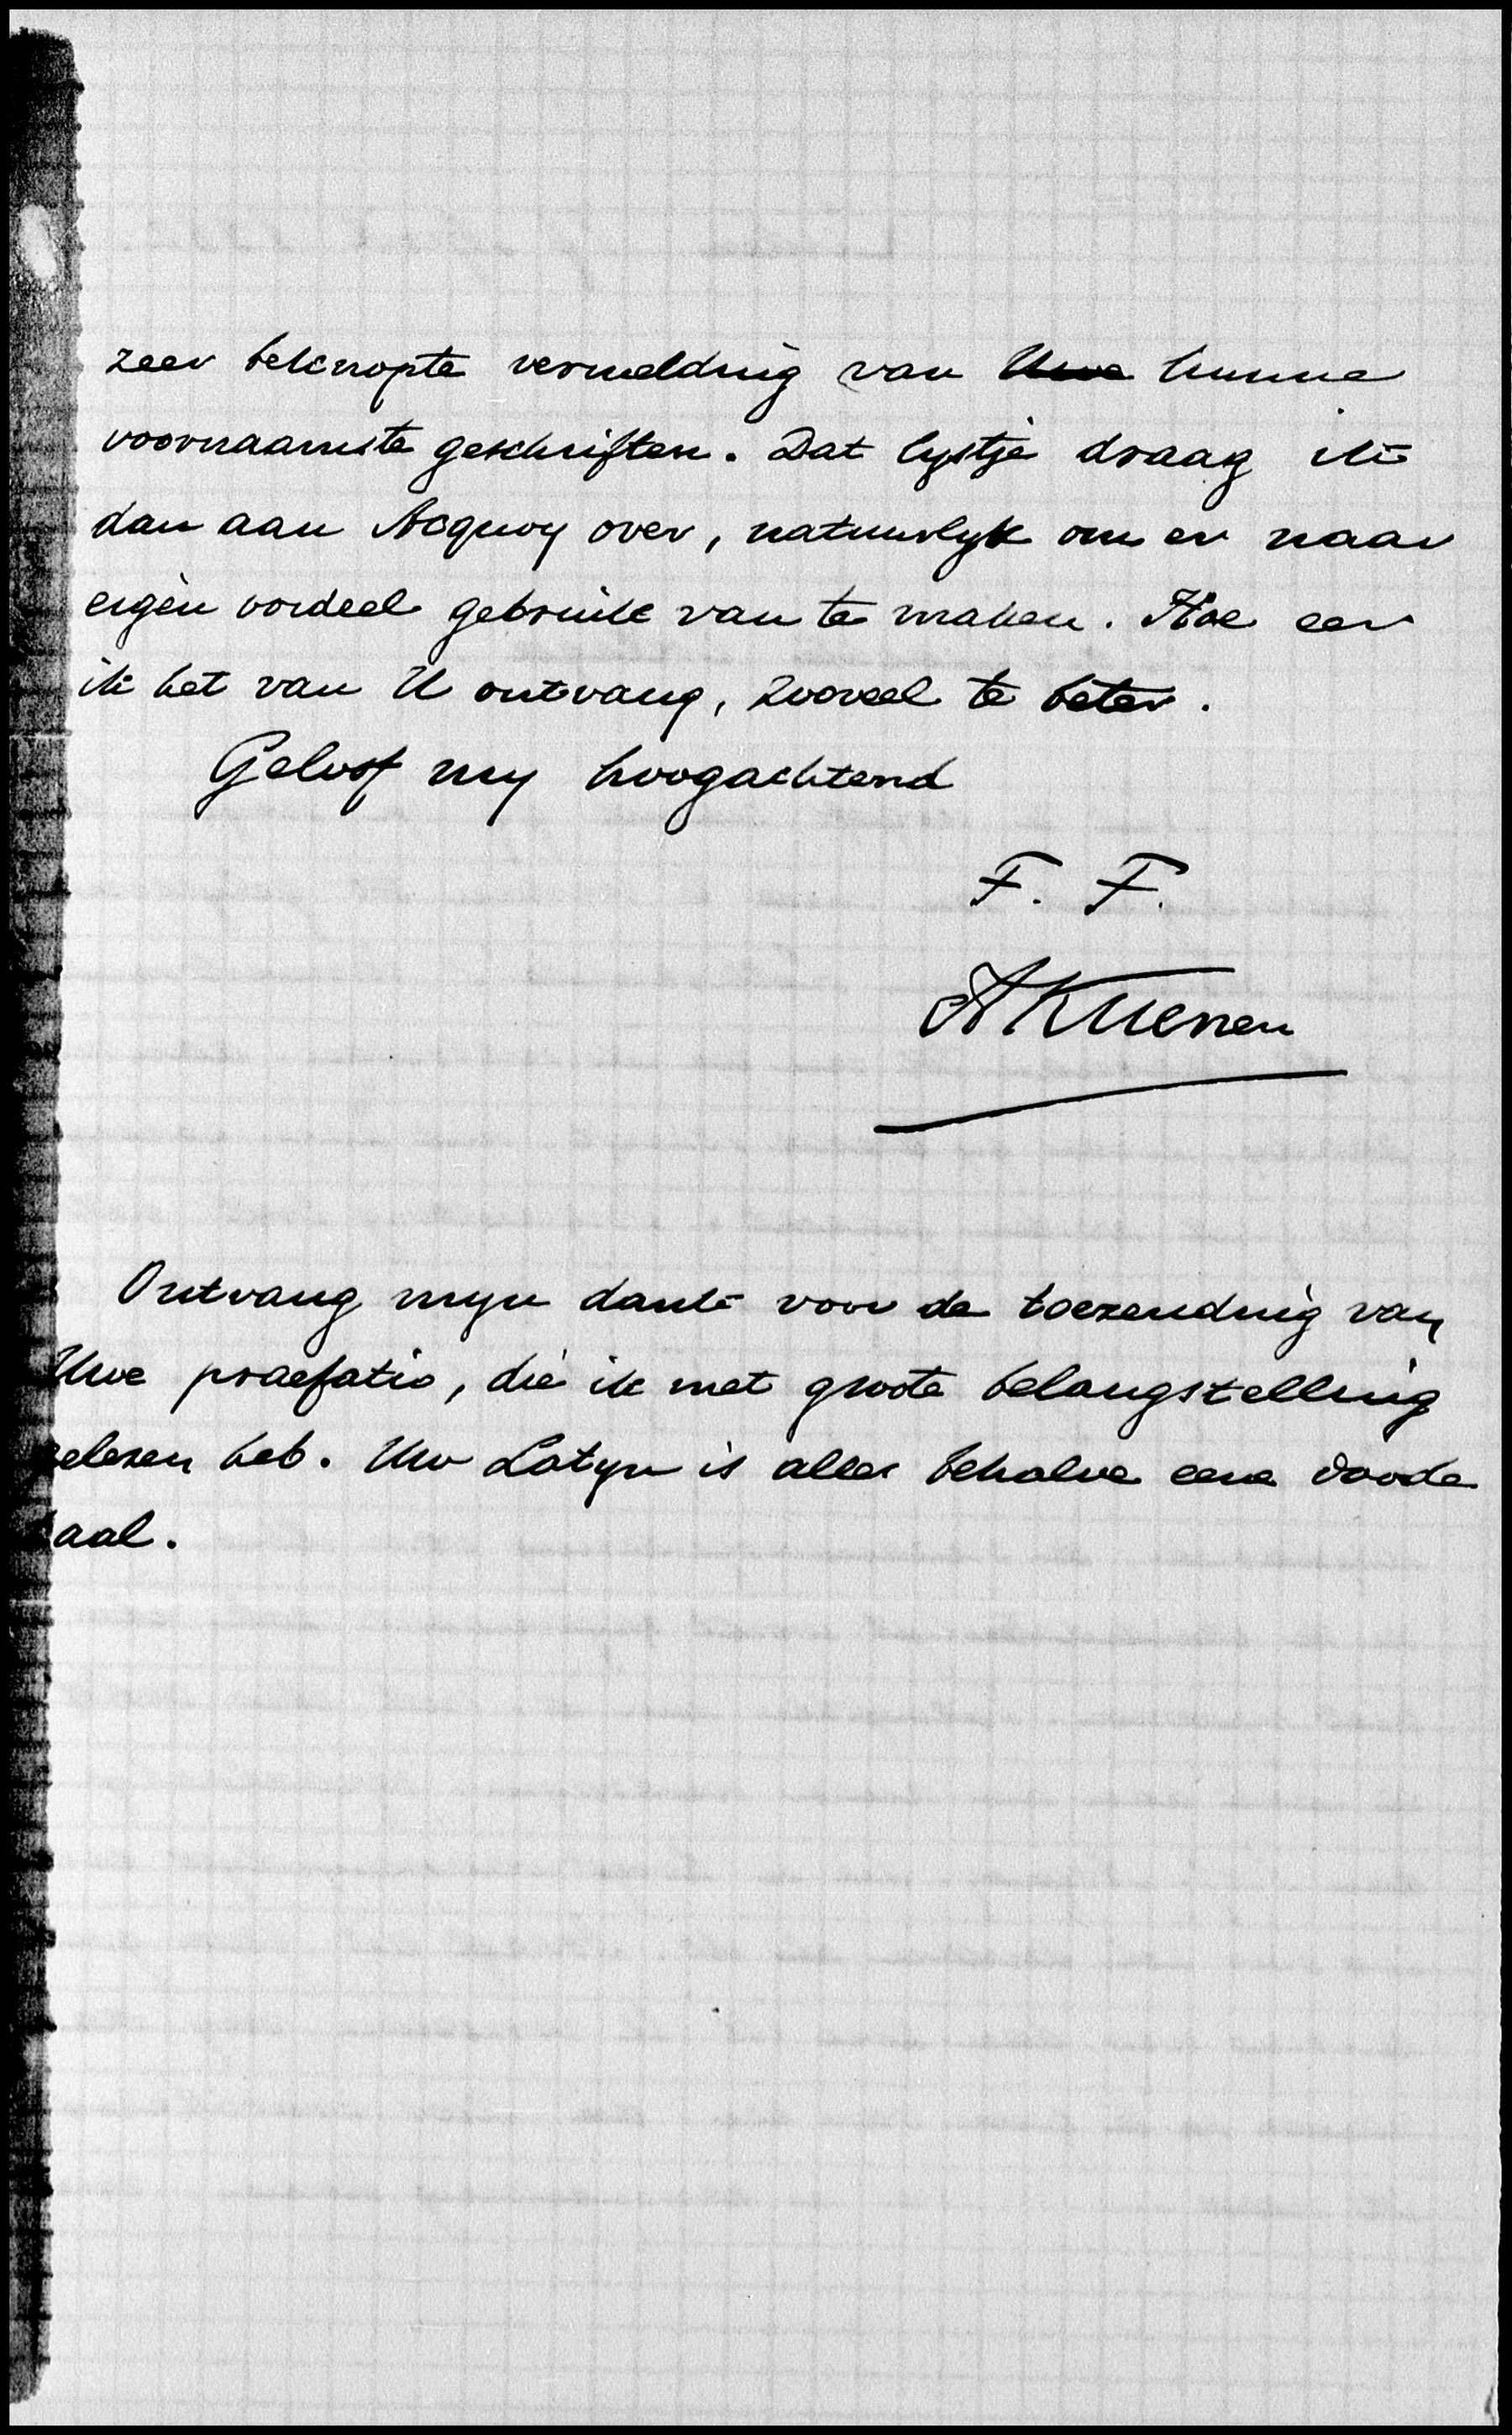 zeer beknopte vermelding van Uwe hunne
voornaamste geschriften. Dat lystje draag ik
dan aan Acquoy over, natuurlyk om er naar
eigen vordeel gebruik van te maken. Hoe eer
ik het van U ontvang, zooveel te beter.
Geloof my hoogachtend
F. F.
AKuenen
Ontvang myn dank voor de toezending van
Uwe praefatio, die ik met groote belangstelling
gelezen heb. Uw Latyn is alles behalve eene doode
taal.